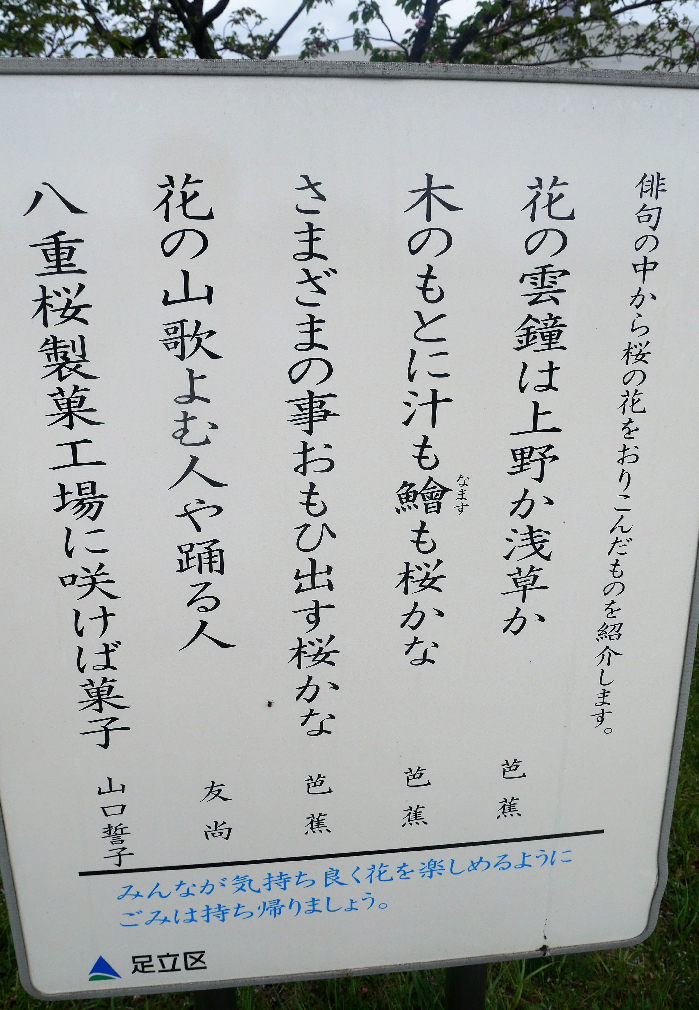 俳句の中から桜の花をおりこんだものを紹介します。
花の雲鐘は上野か浅草か 芭蕉
木のもとに汁も鱠も桜かな 芭蕉
なます
さまざまの事おもひ出す桜かな 芭蕉
花の山歌よむ人や踊る人 友尚
八重桜製菓工場に咲けば菓子 山口誓子
みんなが気持ち良く花を楽しめるように
ごみは持ち帰りましょう。
足立区